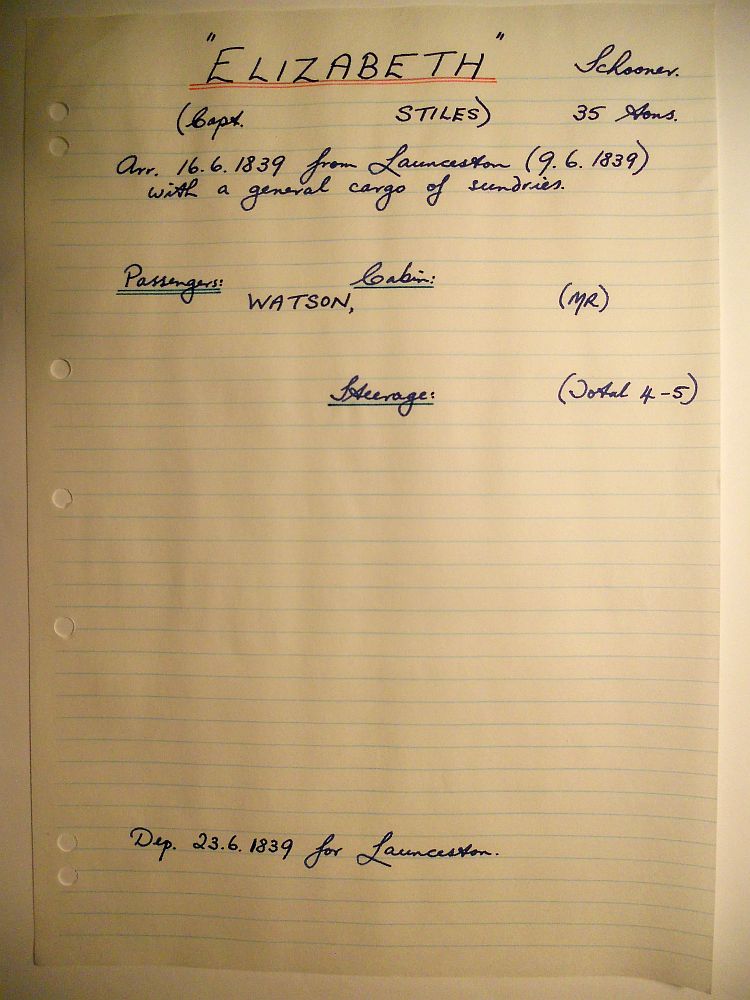 "ELIZABETH" Schooner.
(Capt. STILES) 35 tons.
Arr. 16.6.1839 from Launceston (9.6.1839)
with a general cargo of sundries.
Passengers: Cabin:
WATSON, (MR)
Steerage: (Total 4-5)
Dep. 23.6.1839 for Launceston.